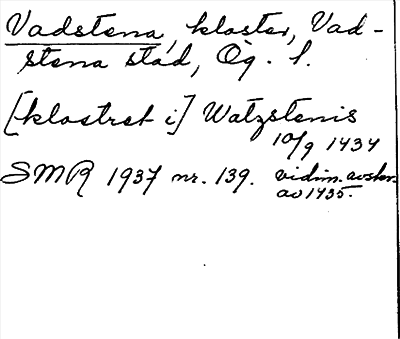 Vadstena, kloster, Vad-
stena stad, Ög. l.
[klostret i] Watzstenis
10/9 1434
SMR 1937 nr. 139. vidim. avskr.
av 1435.